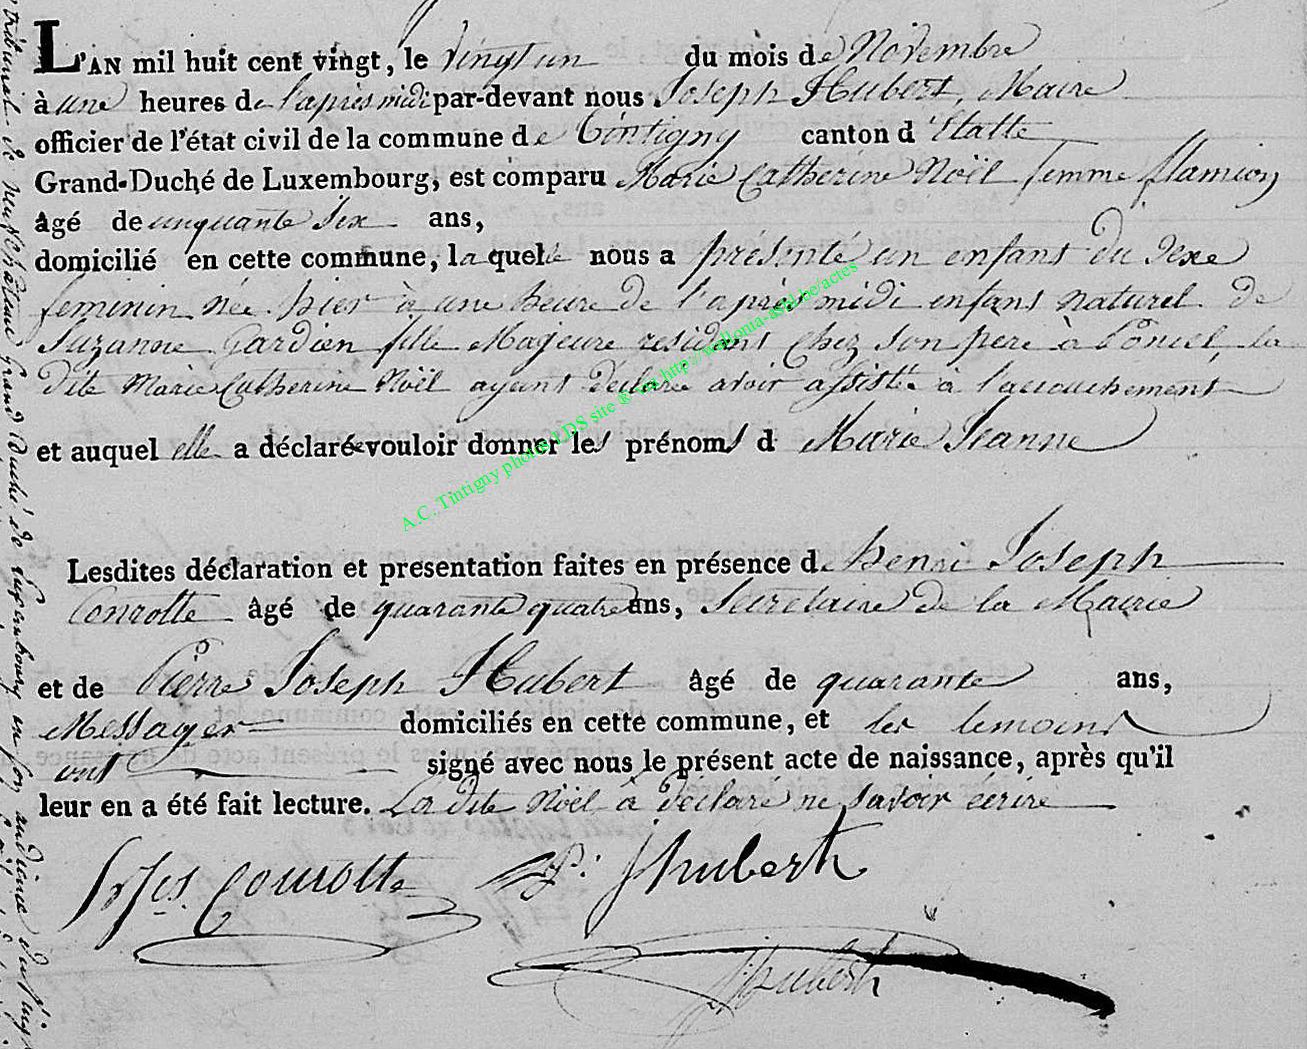 L'AN mil huit cent vingt, le vingt un du mois de Novembre
à une heures de l'après midi par-devant nous Joseph Hubert, Maire
officier de l'état civil de la commune de Tintigny canton d'Etalle
Grand-Duché de Luxembourg, est comparu Marie Catherine Noël femme flamion
âgé de cinquante six ans,
domicilié en cette commune, laquelle nous a présenté un enfant du sexe
feminin née hier à une heure de l'après midi enfant naturel de
Suzanne Gardien fille Majeure residant chez son pere à Poncel, la
dite Marie Catherine Noël ayant déclaré avoir assistée à l'accouchement
et auquel elle a déclarée vouloir donner les prénoms d Marie Jeanne
Lesdites déclaration et presentation faites en présence de henri Joseph
Conrotte âgé de quarante quatre ans, Secretaire de la Mairie
et de Pierre Joseph Hubert âgé de quarante ans,
Messager domiciliés en cette commune, et les temoins
ont signé avec nous le présent acte de naissance, après qu'il
leur en a été fait lecture. La dite Noël à déclaré ne savoir écrire
Conrotte P: J hubert
J hubert
tribunal de neufchâteau grand duché de Luxembourg en son audience du
A.C. Tintigny photos LDS site ® sur http://wallonia-asbl.be/actes